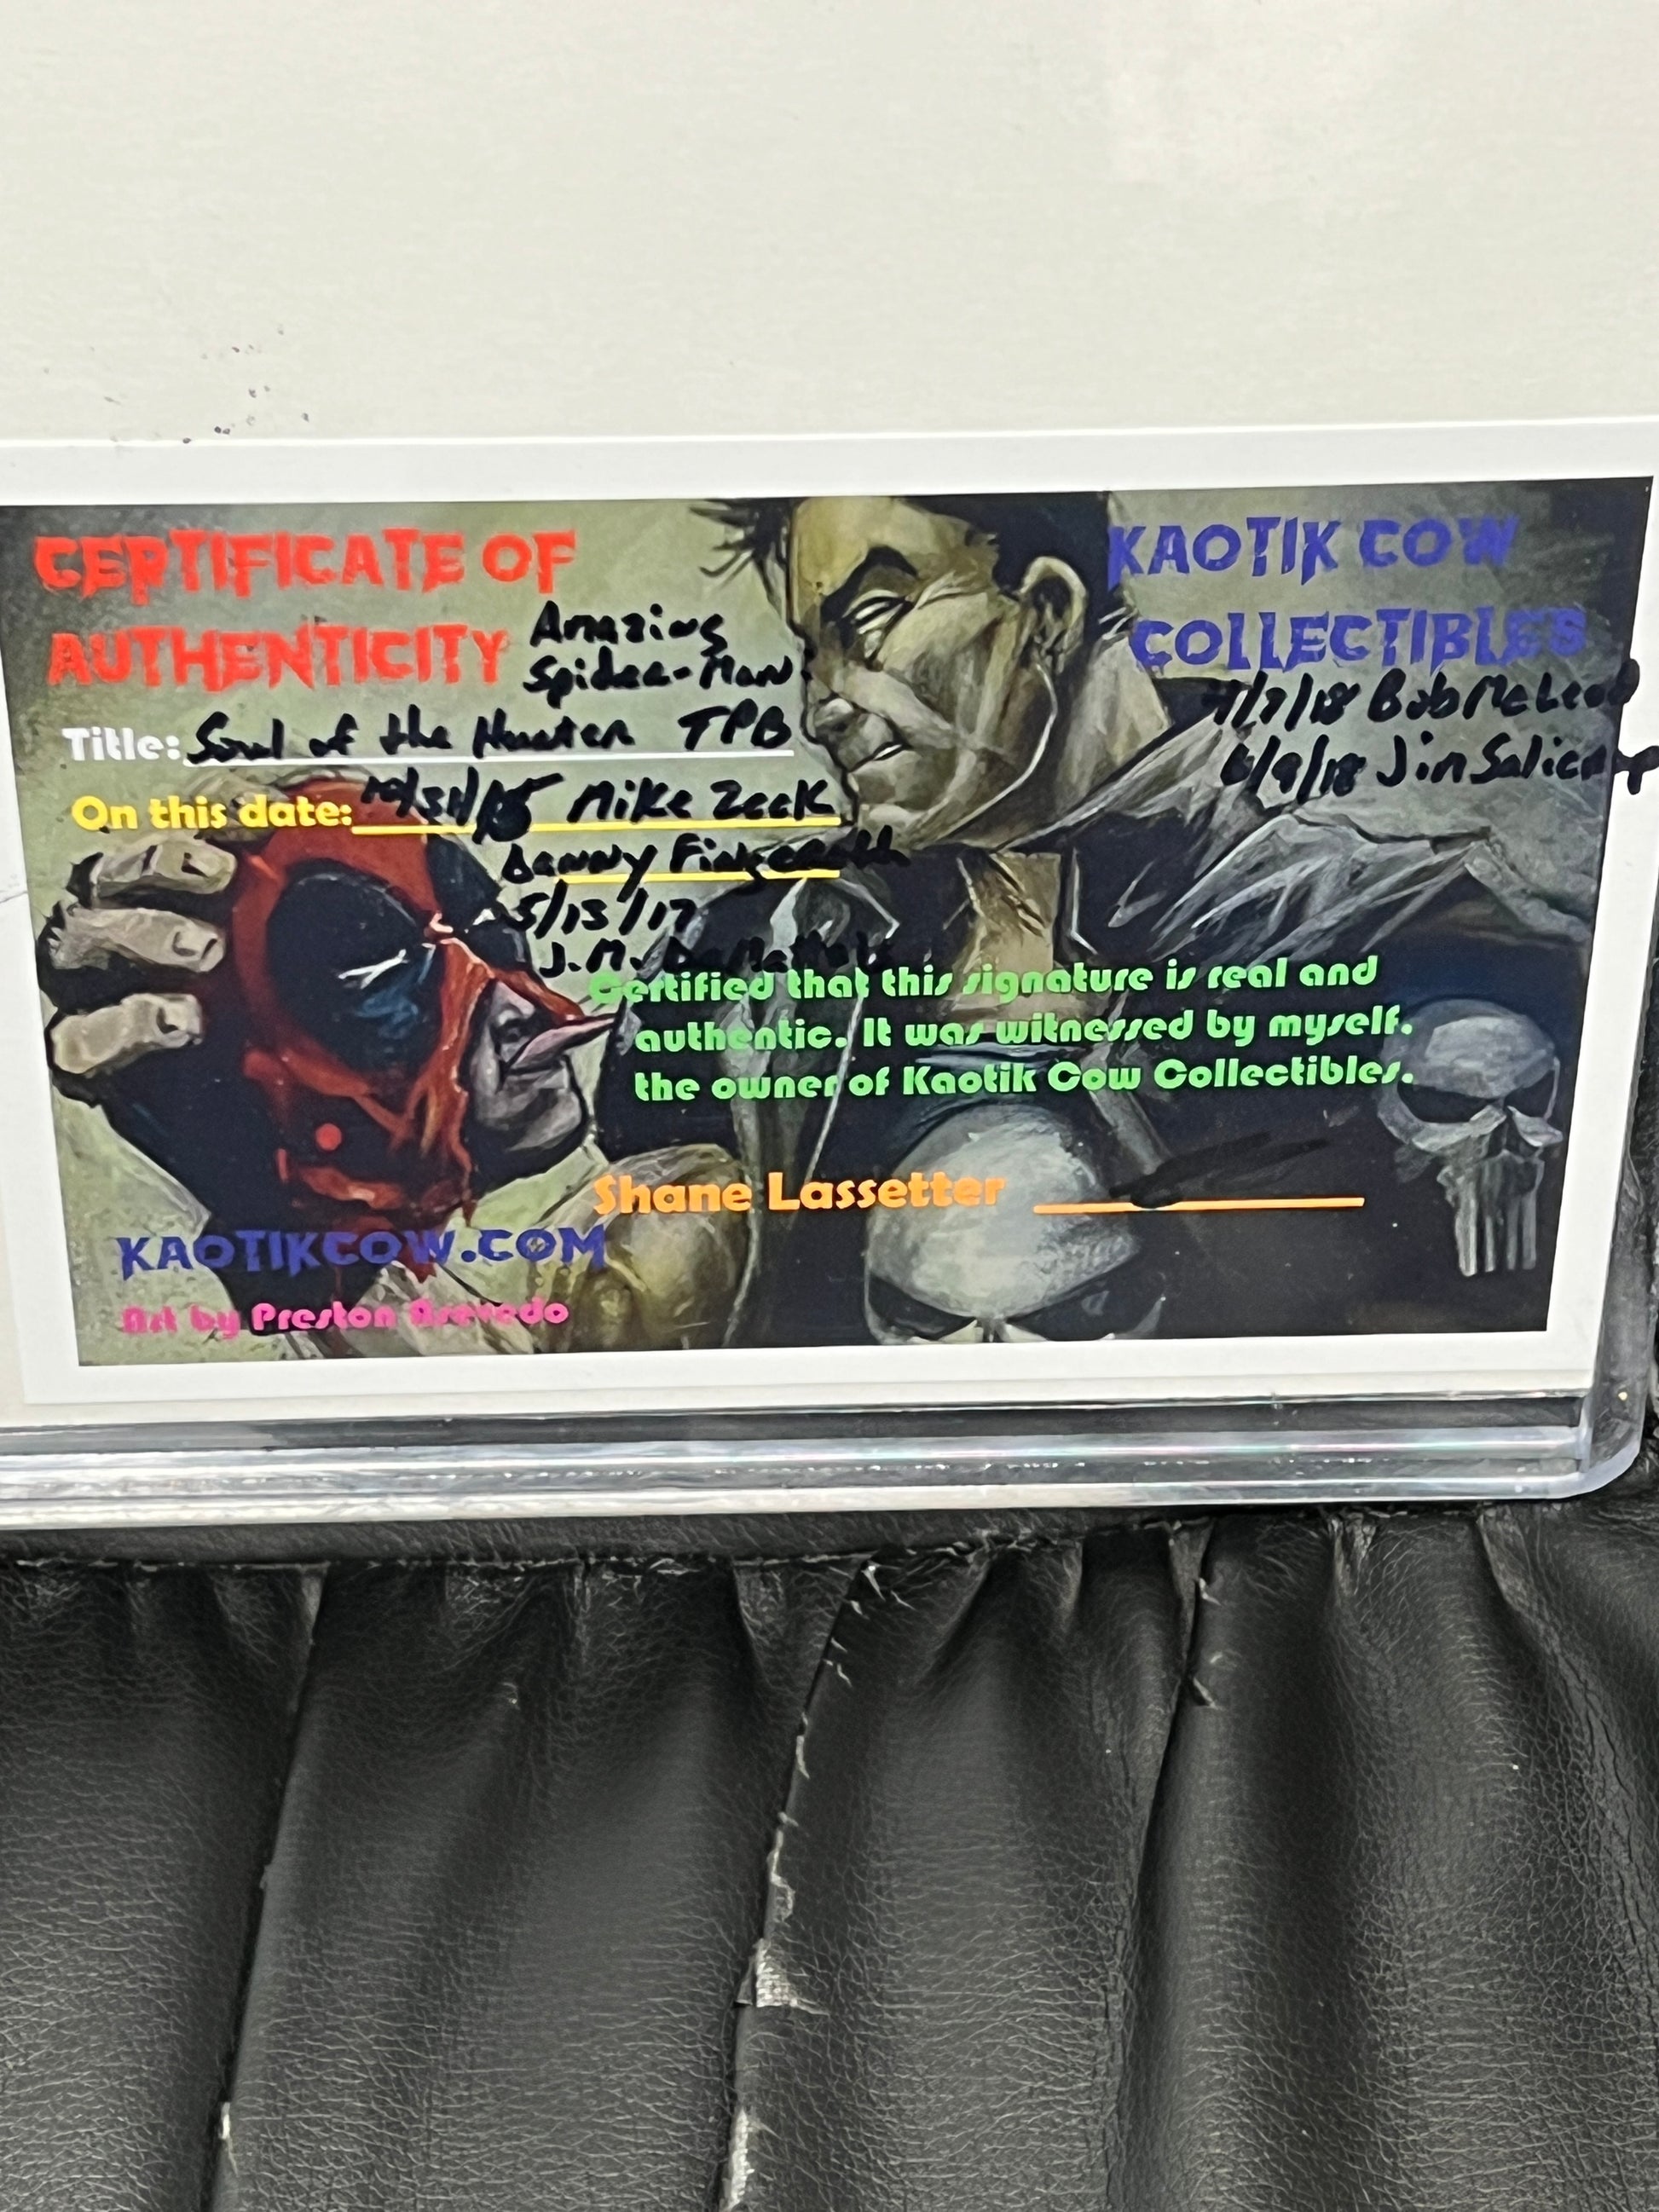 CERTIFICATE OF
AUTHENTICITY
KAOTIK COW
COLLECTIBLES
Amazing
Spider-Man:
Title: Soul of the Hunter TPB
On this date: 10/31/15 Mike Zeck
Danny Fingeroth
5/13/17
J.M. DeMatteis
4/7/18 Bob McLeod
6/9/18 Jim Salicrup
Certified that this signature is real and
authentic. It was witnessed by myself.
the owner of Kaotik Cow Collectibles.
Shane Lassetter
KAOTIKCOW.COM
Art by Preston Asevedo